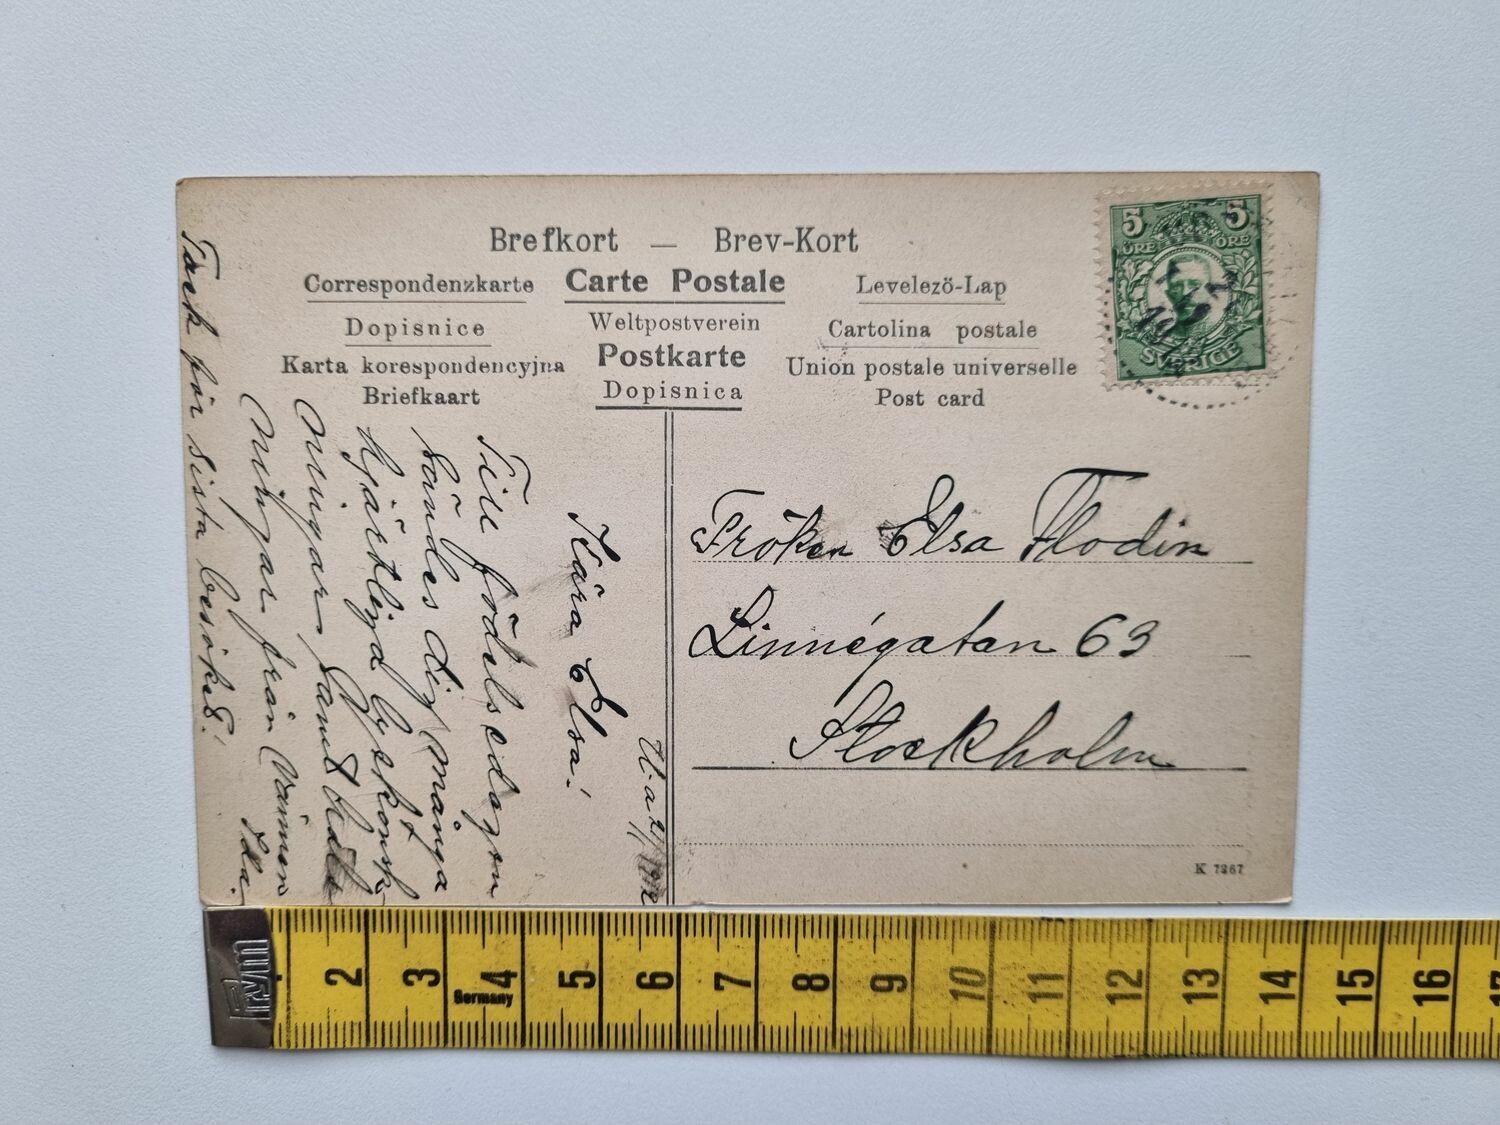 Brefkort — Brev-Kort
Correspondenzkarte
Carte Postale
Levelezö-Lap
Dopisnice
Weltpostverein
Cartolina postale
Karta korespondencyjna
Postkarte
Union postale universelle
Briefkaart
Dopisnica
Post card
5 5
ÖRE ÖRE
SVERIGE
Fröken Elsa Flodin
Linnégatan 63
Stockholm
K 7367
1912
Kära Elsa!
Till födelsedagen
sändes dig många
hjärtliga lyckönsk
ningar samt
från vännen
Ida.
Tack för sista besöket!
2 3 4 5 6 7 8 9 10 11 12 13 14 15 16 17
Germany